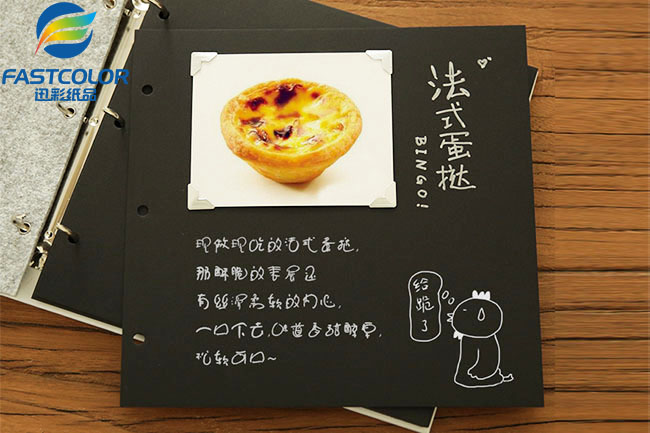 FASTCOLOR
迅彩纸品
法式蛋挞
BINGO!
即做即吃的法式蛋挞,
那酥脆的表层还
有丝滑柔软的内心,
一口下去,味道香甜醇厚,
松软可口~
给跪了